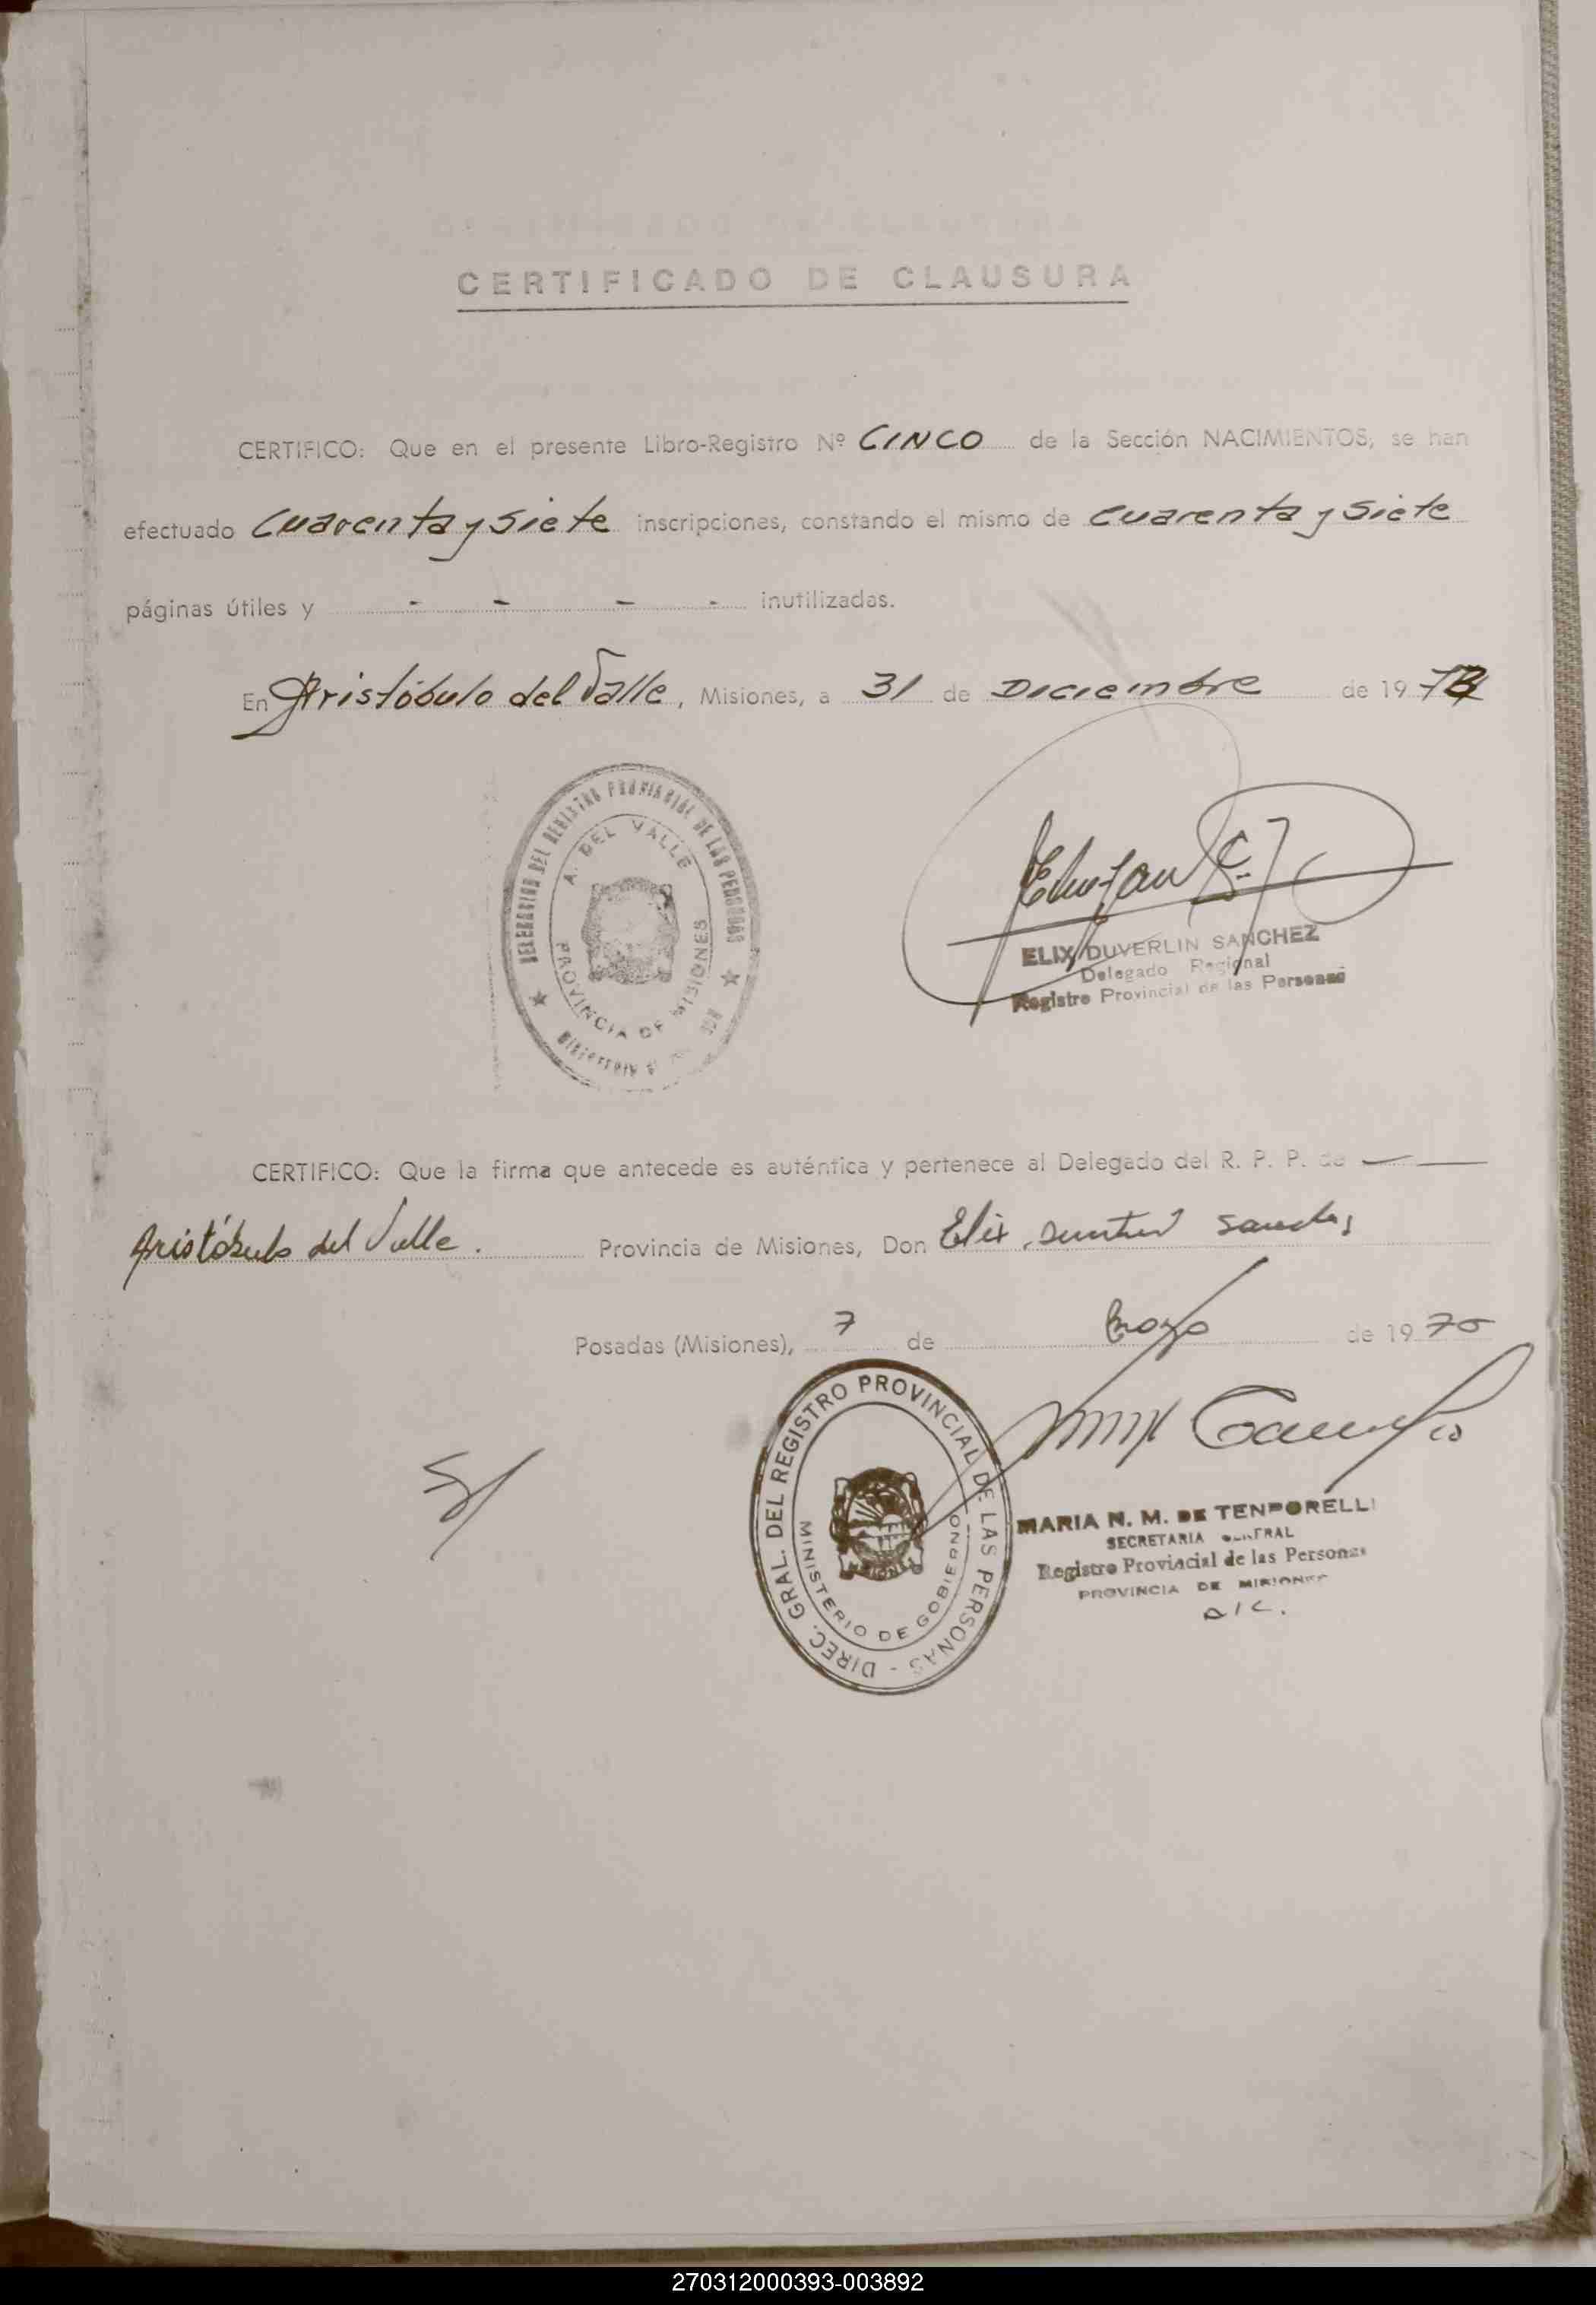 CERTIFICADO DE CLAUSURA
CERTIFICO: Que en el presente Libro-Registro Nº CINCO de la Sección NACIMIENTOS, se han
efectuado Cuarenta y Siete inscripciones, constando el mismo de cuarenta y Siete
páginas útiles y - - - - inutilizadas.
En Aristóbulo del Valle, Misiones, a 31 de Diciembre de 19
DELEGACION DEL REGISTRO PROVINCIAL DE LAS PERSONAS
A. DEL VALLE
PROVINCIA DE MISIONES
ELIX DUVERLIN SANCHEZ
Delegado Regional
Registro Provincial de las Personas
CERTIFICO: Que la firma que antecede es auténtica y pertenece al Delegado del R. P. P. de —
Aristóbulo del Valle. Provincia de Misiones, Don Elix
Posadas (Misiones), 7 de mayo de 1970
DIREC. GRAL. DEL REGISTRO PROVINCIAL DE LAS PERSONAS -
MINISTERIO DE GOBIERNO
MISIONES
MARIA N. M. DE TENPORELLI
SECRETARIA GENERAL
Registro Provincial de las Personas
PROVINCIA DE MISIONES
270312000393-003892